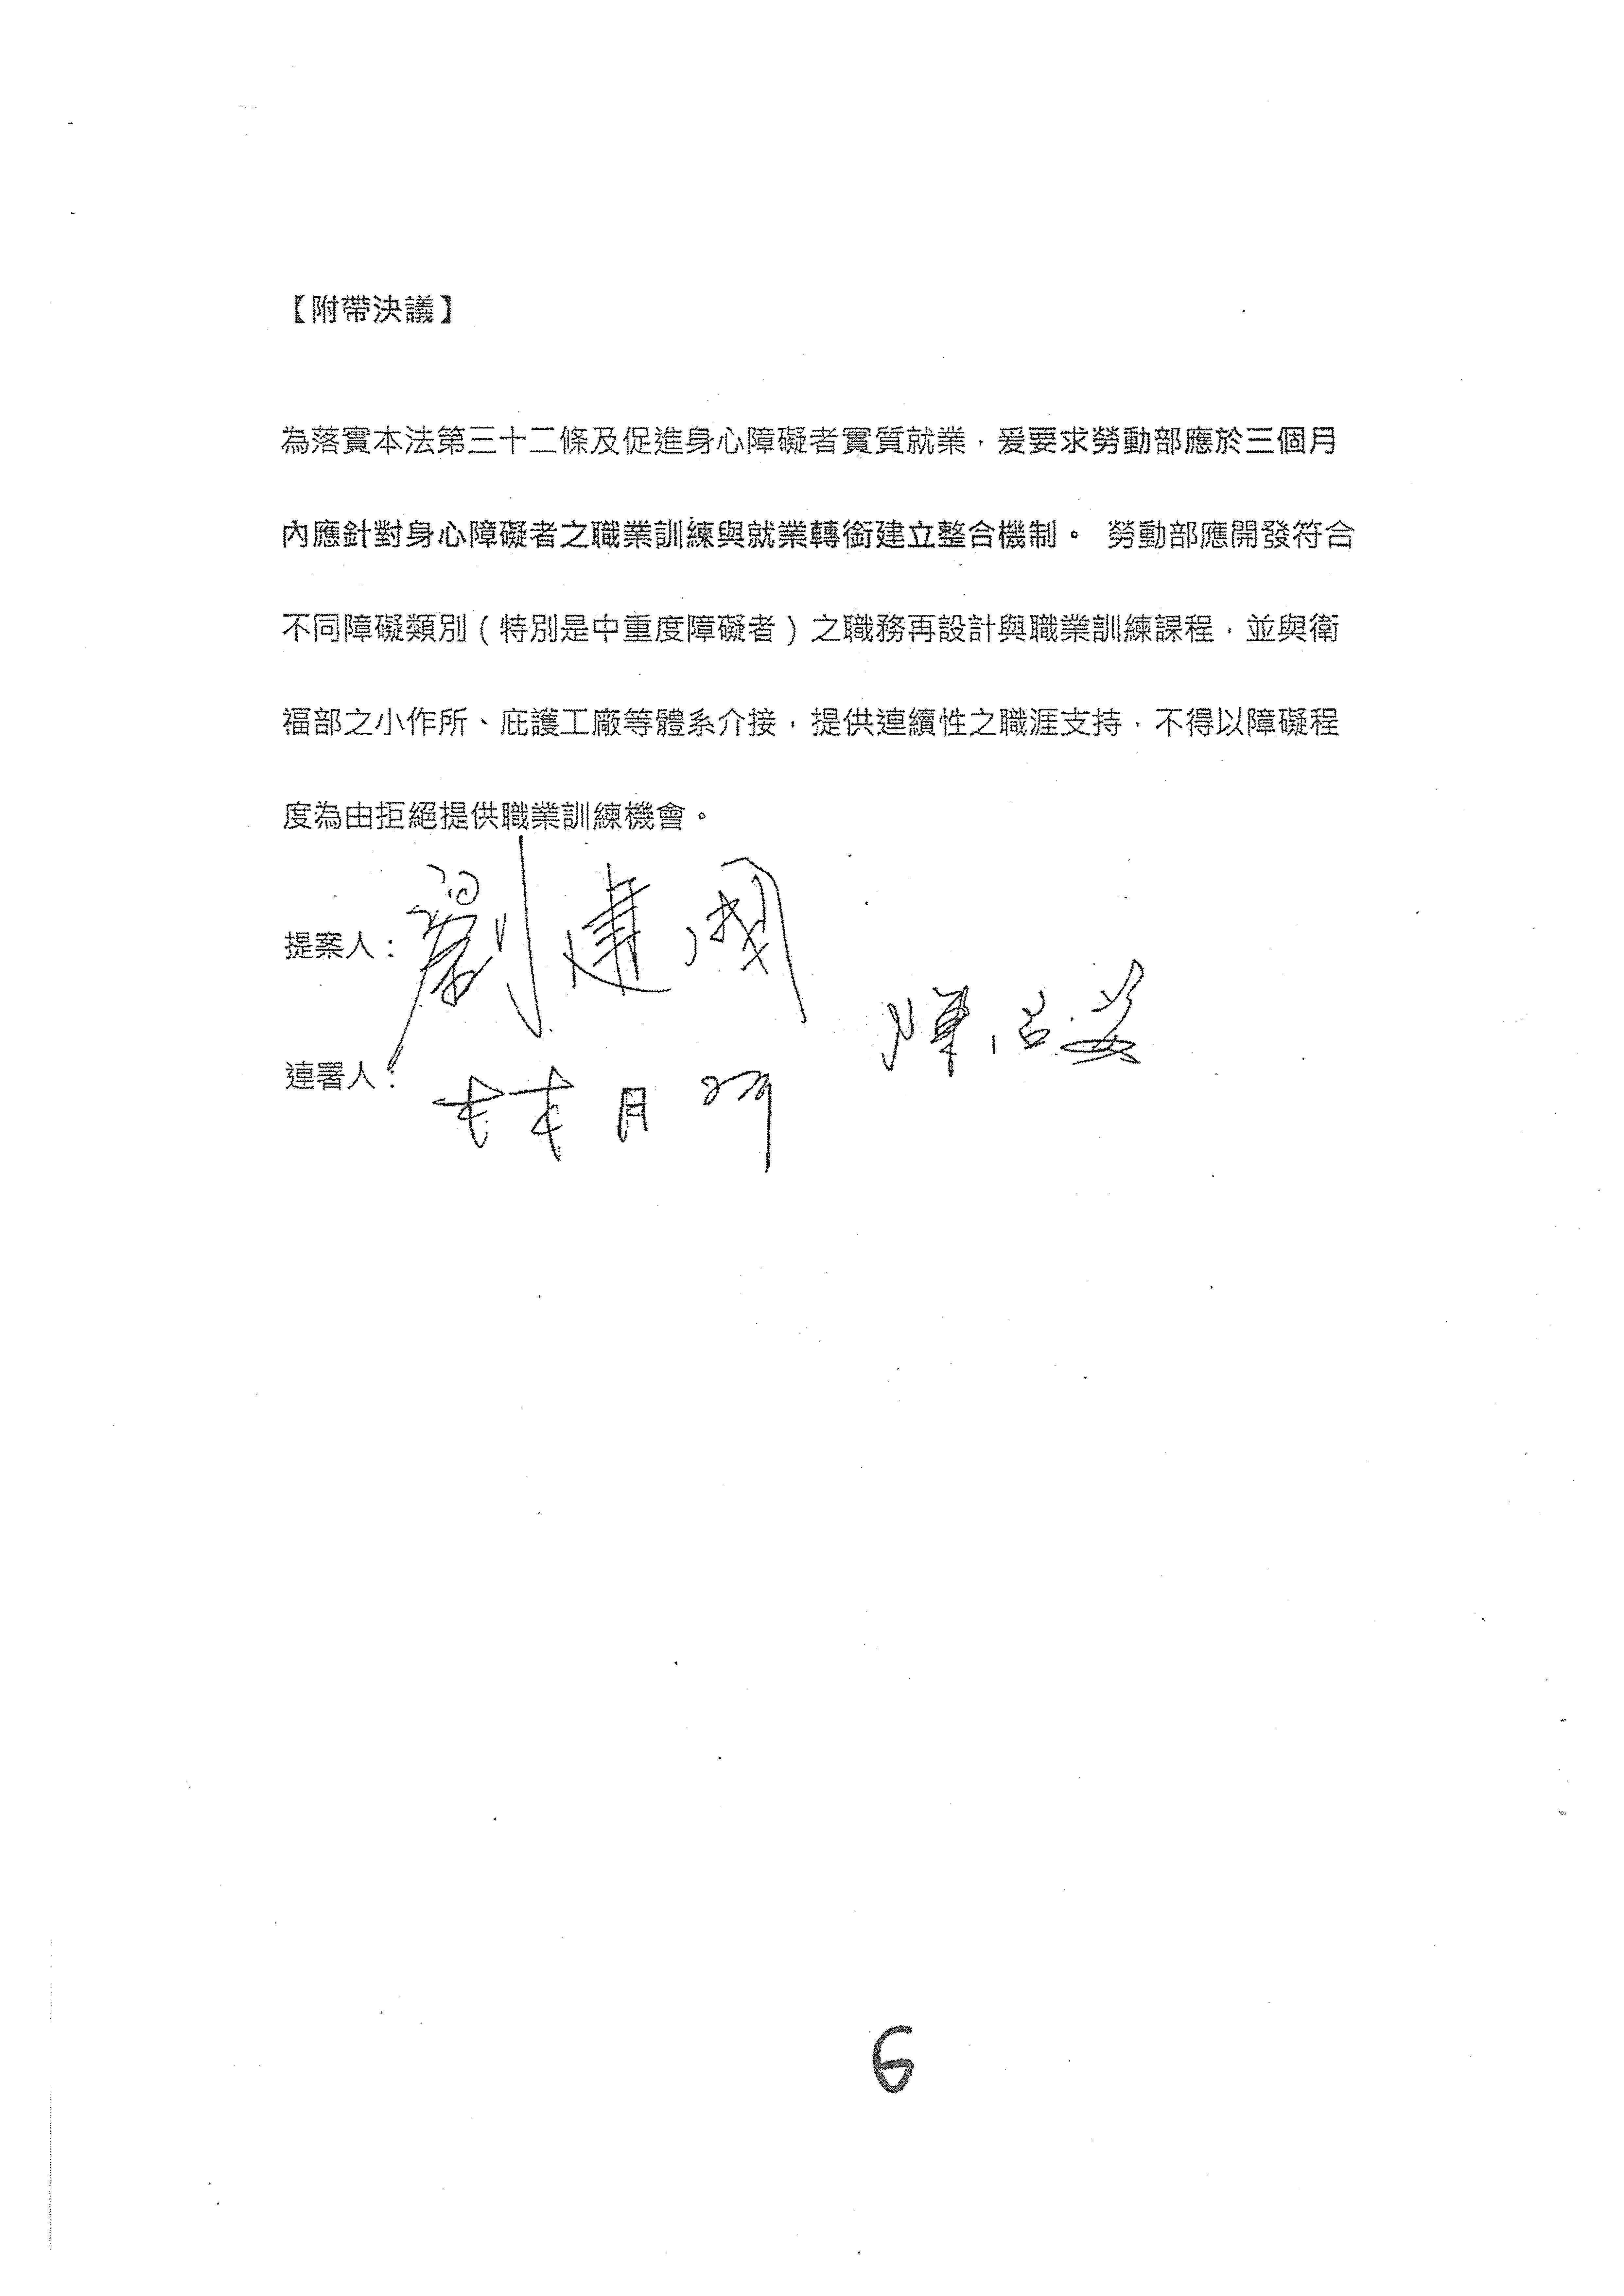 【附帶決議】
為落實本法第三十二條及促進身心障礙者實質就業，爰要求勞動部應於三個月
內應針對身心障礙者之職業訓練與就業轉銜建立整合機制。 勞動部應開發符合
不同障礙類別（特別是中重度障礙者）之職務再設計與職業訓練課程，並與衛
福部之小作所、庇護工廠等體系介接，提供連續性之職涯支持，不得以障礙程
度為由拒絕提供職業訓練機會。
提案人：劉建國
連署人：林月琴
6